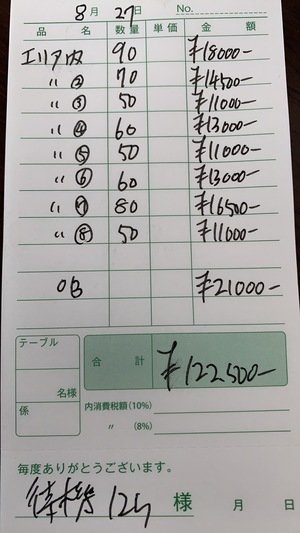 8月27日 No.
品名 数量 単価 金額
エリア内 90 ¥18000-
〃② 70 ¥14500-
〃③ 50 ¥11000-
〃④ 60 ¥13000-
〃⑤ 50 ¥11000-
〃⑥ 60 ¥13000-
〃⑦ 80 ¥16500-
〃⑧ 50 ¥11000-
OB ¥21000-
テーブル
合計 ¥122500-
名様
係
内消費税額(10%)
〃 (8%)
毎度ありがとうございます。
待機 12h 様 月 日